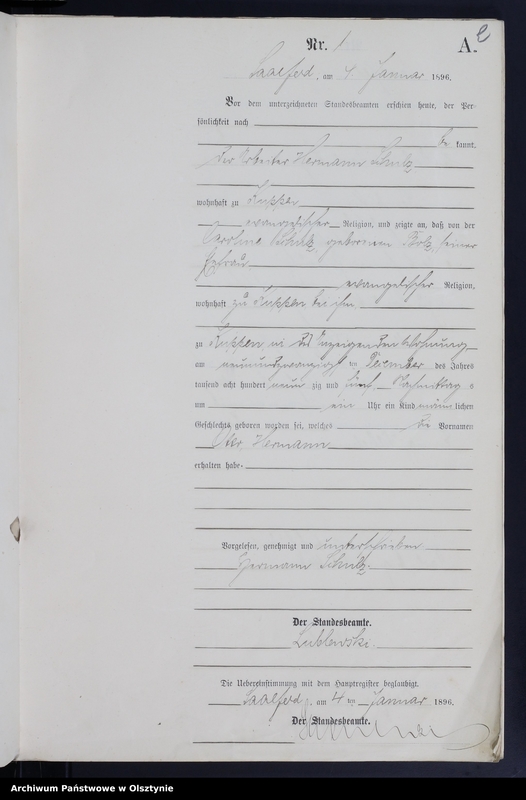 Nr. 1
A. 2
Saalfeld, am 4. Januar 1896.
Vor dem unterzeichneten Standesbeamten erschien heute, der Per-
sönlichkeit nach
be kannt,
der Arbeiter Hermann Schulz
wohnhaft zu Kuppen
evangelischer Religion, und zeigte an, daß von der
Caroline Schulz, geborenen, seiner
Ehefrau
evangelischer Religion,
wohnhaft zu Kuppen bei ihm
zu Kuppen in des Anzeigenden Wohnung
am neunundzwanzigsten Dezember des Jahres
tausend acht hundert neun zig und fünf Nachmittags
um ein Uhr ein Kind männlichen
Geschlechts geboren worden sei, welches die Vornamen
Otto Hermann
erhalten habe.
Vorgelesen, genehmigt und unterschrieben
Hermann Schulz.
Der Standesbeamte.
Lublewski.
Die Uebereinstimmung mit dem Hauptregister beglaubigt.
Saalfeld, am 4ten Januar 1896.
Der Standesbeamte.
Archiwum Państwowe w Olsztynie